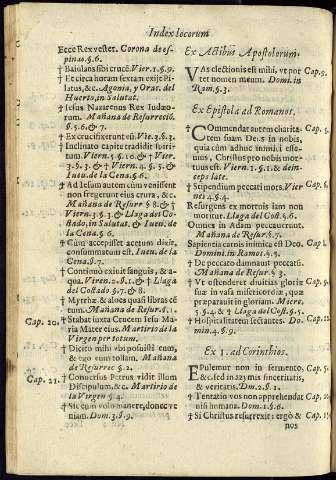 Index locorum
Ecce Rex vester. Corona de es-
pinas. §.6.
† Baiulans sibi crucē. Vier. 1. §.9.
† Et circa horam sextam exijt Pi-
latus, &c. Agonia, y Orac. del
Huerto, in Salutat.
† Iesus Nazarenus Rex Iudæo-
rum. Mañana de Resurreciō.
§.5.6. & 7.
† Ex crucifixerunt eū. Vie. 3. §.3.
† Inclinato capite tradidit spiri-
tum. Viern. 1. §.10. & † Vier.
3. §.3. & † Viern. 4. §.5. &
Iuev. de la Cena. §.6.
† Ad Iesum autem cum venissent
non fregerunt eius crura, &c.
Mañana de Resurr. §.8. & †
Viern. 3. §.3. & Llaga del Co-
stado, in Salutat. & Iuev. de
la Cena. §.6.
† Cūm accepisset acetum dixit,
consummatum est. Iuev. de la
Cena. §.7.
† Continuò exiuit sanguis, & a-
qua. Viern. & † Llaga
del Costad. §.7. & 8.
† Myrrhæ & aloes quasi libras cē
tum. Mañana de Resur. §.1.
Cap. 20. † Stabat iuxta Crucem Iesu Ma-
ria Mater eius. Martirio de la
Virgen per totum.
† Dicito mihi vbi posuisti eum,
& ego eum tollam. Mañana
de Resurrec. §.2.
Cap. 21. † Conuersus Petrus vidit illum
Discipulum, &c. Martirio de
la Virgen. §.4.
† Sic eum volo manere, donec ve
niam. Dom. 3. §.9.
Ex Actibus Apostolorum.
VAs electionis est mihi, vt por Cap. 9.
tet nomen meum. Domi. in
Ram. §.3.
Ex Epistola ad Romanos.
COmmendat autem charita- Cap. 5.
tem suam Deus in nobis,
quia cùm adhuc inimici esse-
mus, Christus pro nobis mor-
tuus est. Viern. 1. §.1. & dein-
ceps late.
† Stipendium peccati mors. Vier
nes 4. §.4.
Resurgens ex mortuis iam non
moritur. Llaga del Cost. §.6.
Omnes in Adam peccauerunt.
Mañana de Resur. §.7.
Sapientia carnis inimica est Deo. Cap. 8.
Domini. in Ramos. §.8.
† De peccato damnauit peccatū.
Mañana de Resur. §.3.
† Vt ostenderet diuitias gloriæ Cap. 9.
suæ in vasa misericordiæ, quæ
præparauit in gloriam. Mierc.
§.9.4. & † Llaga del Cost. §.5.
† Hospitalitatem sectantes. Do- Cap. 12.
min. 4. §.9.
Ex 1. ad Corinthios.
EPulemur non in fermento, Cap. 5.
&c. sed in azymis sinceritatis,
& veritatis. Dom. 2. §.1.
† Tentatio vos non apprehendat Cap. 10.
nisi humana. Dom. 1. §.6.
† Si Christus resurrexit: ergò & Cap. 15.
nos